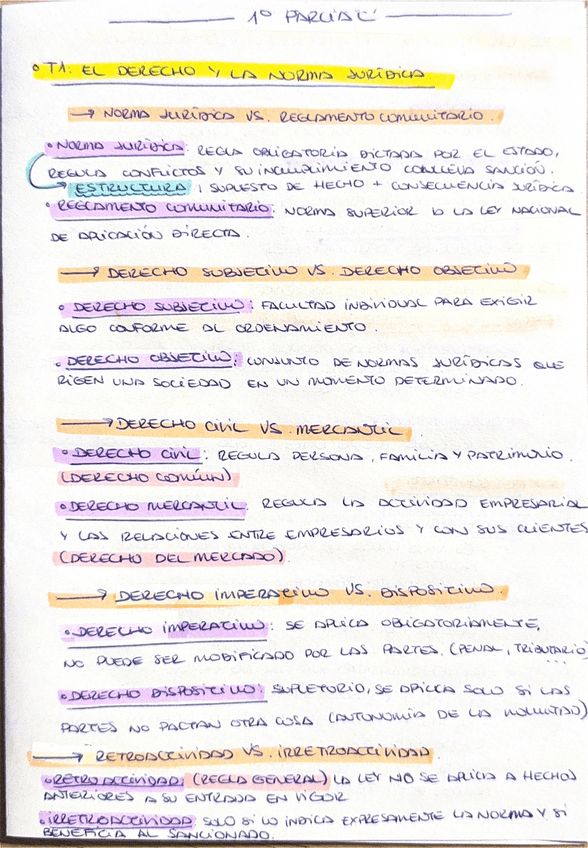 1º PARCIAL
• T1: EL DERECHO Y LA NORMA JURÍDICA
→ NORMA JURÍDICA VS. REGLAMENTO COMUNITARIO.
• NORMA JURÍDICA: REGLA OBLIGATORIA DICTADA POR EL ESTADO,
REGULA CONFLICTOS Y SU INCUMPLIMIENTO CONLLEVA SANCIÓN.
ESTRUCTURA: SUPUESTO DE HECHO + CONSECUENCIA JURÍDICA
• REGLAMENTO COMUNITARIO: NORMA SUPERIOR A LA LEY NACIONAL
DE APLICACIÓN DIRECTA.
→ DERECHO SUBJETIVO VS. DERECHO OBJETIVO
• DERECHO SUBJETIVO: FACULTAD INDIVIDUAL PARA EXIGIR
ALGO CONFORME AL ORDENAMIENTO.
• DERECHO OBJETIVO: CONJUNTO DE NORMAS JURÍDICAS QUE
RIGEN UNA SOCIEDAD EN UN MOMENTO DETERMINADO.
→ DERECHO CIVIL VS. MERCANTIL.
• DERECHO CIVIL: REGULA PERSONA, FAMILIA Y PATRIMONIO.
(DERECHO COMÚN)
• DERECHO MERCANTIL: REGULA LA ACTIVIDAD EMPRESARIAL
Y LAS RELACIONES ENTRE EMPRESARIOS Y CON SUS CLIENTES
(DERECHO DEL MERCADO).
→ DERECHO IMPERATIVO VS. DISPOSITIVO.
• DERECHO IMPERATIVO: SE APLICA OBLIGATORIAMENTE,
NO PUEDE SER MODIFICADO POR LAS PARTES. (PENAL, TRIBUTARIO)
...
• DERECHO DISPOSITIVO: SUPLETORIO, SE APLICA SOLO SI LAS
PARTES NO PACTAN OTRA COSA (AUTONOMÍA DE LA VOLUNTAD)
→ RETROACTIVIDAD VS. IRRETROACTIVIDAD.
• RETROACTIVIDAD: (REGLA GENERAL) LA LEY NO SE APLICA A HECHOS
ANTERIORES A SU ENTRADA EN VIGOR
• IRRETROACTIVIDAD: SOLO SI LO INDICA EXPRESAMENTE LA NORMA Y SI
BENEFICIA AL SANCIONADO.